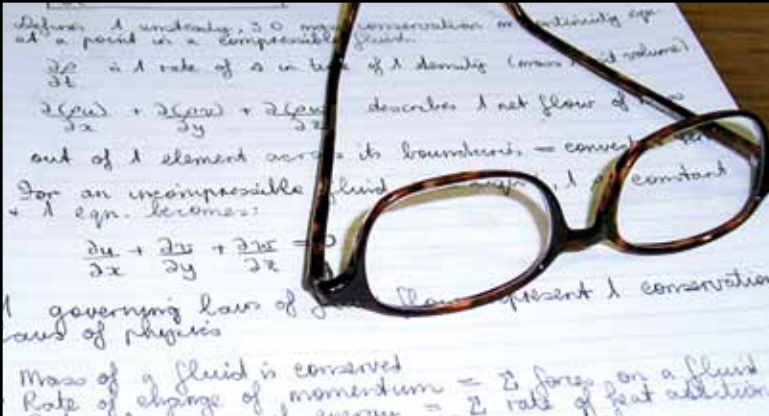 Defines λ unsteady, 3D mass conservation or continuity eqn.
at a point in a compressible fluid.
∂ρ/∂t is λ rate of Δ in time of λ density (mass unit volume)
∂(ρu)/∂x + ∂(ρv)/∂y + ∂(ρw)/∂z describes λ net flow of mass
out of λ element across its boundaries =
For an incompressible fluid λ constant
+ λ eqn. becomes:
∂u/∂x + ∂v/∂y + ∂w/∂z = 0
λ governing laws of flow represent λ conservation
laws of physics
Mass of a fluid is conserved
Rate of change of momentum = Σ forces on a fluid
energy = Σ rate of heat addition